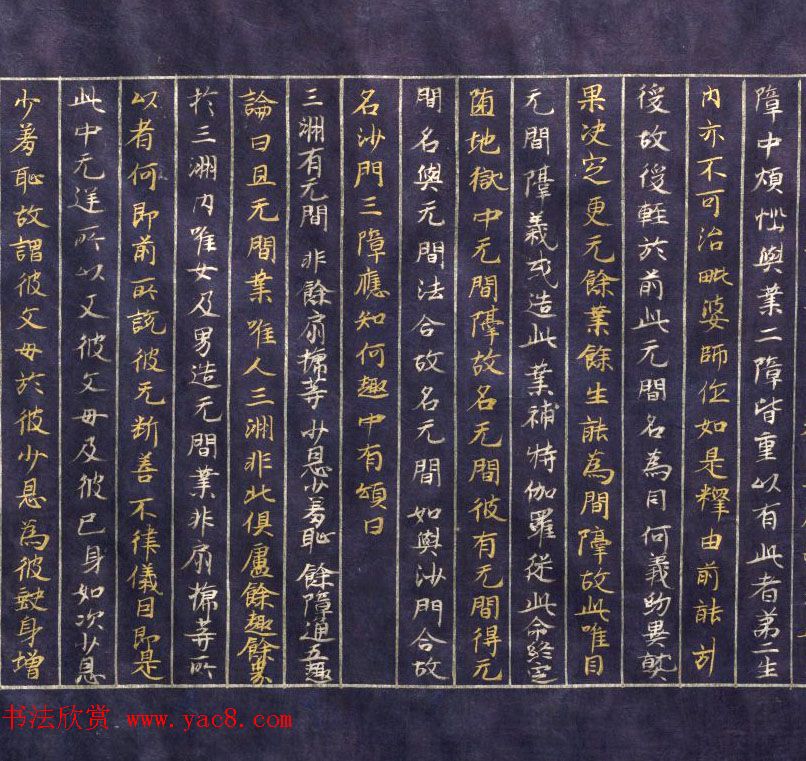 障中煩惱與業二障皆重以有此者第二生
内亦不可治毗婆師作如是釋由前能引
後故後輕於前此无間名為目何義約異熟
果決定更无餘業餘生能為間隔故此唯目
无間隔義或造此業補特伽羅從此命終定
墮地獄中无間隔故名无間彼有无間得无
間名與无間法合故名无間如與沙門合故
名沙門三障應知何趣中有頌曰
三洲有无間 非餘扇搋等 少恩少羞恥 餘障通五趣
論曰且无間業唯人三洲非北俱盧餘趣餘界
於三洲内唯女及男造无間業非扇搋等所
以者何即前所說彼无斷善不律儀因即是
此中无逆所以又彼父母及彼己身如次少恩
少羞恥故謂彼父母於彼少恩為彼缺身增
书法欣赏 www.yac8.com